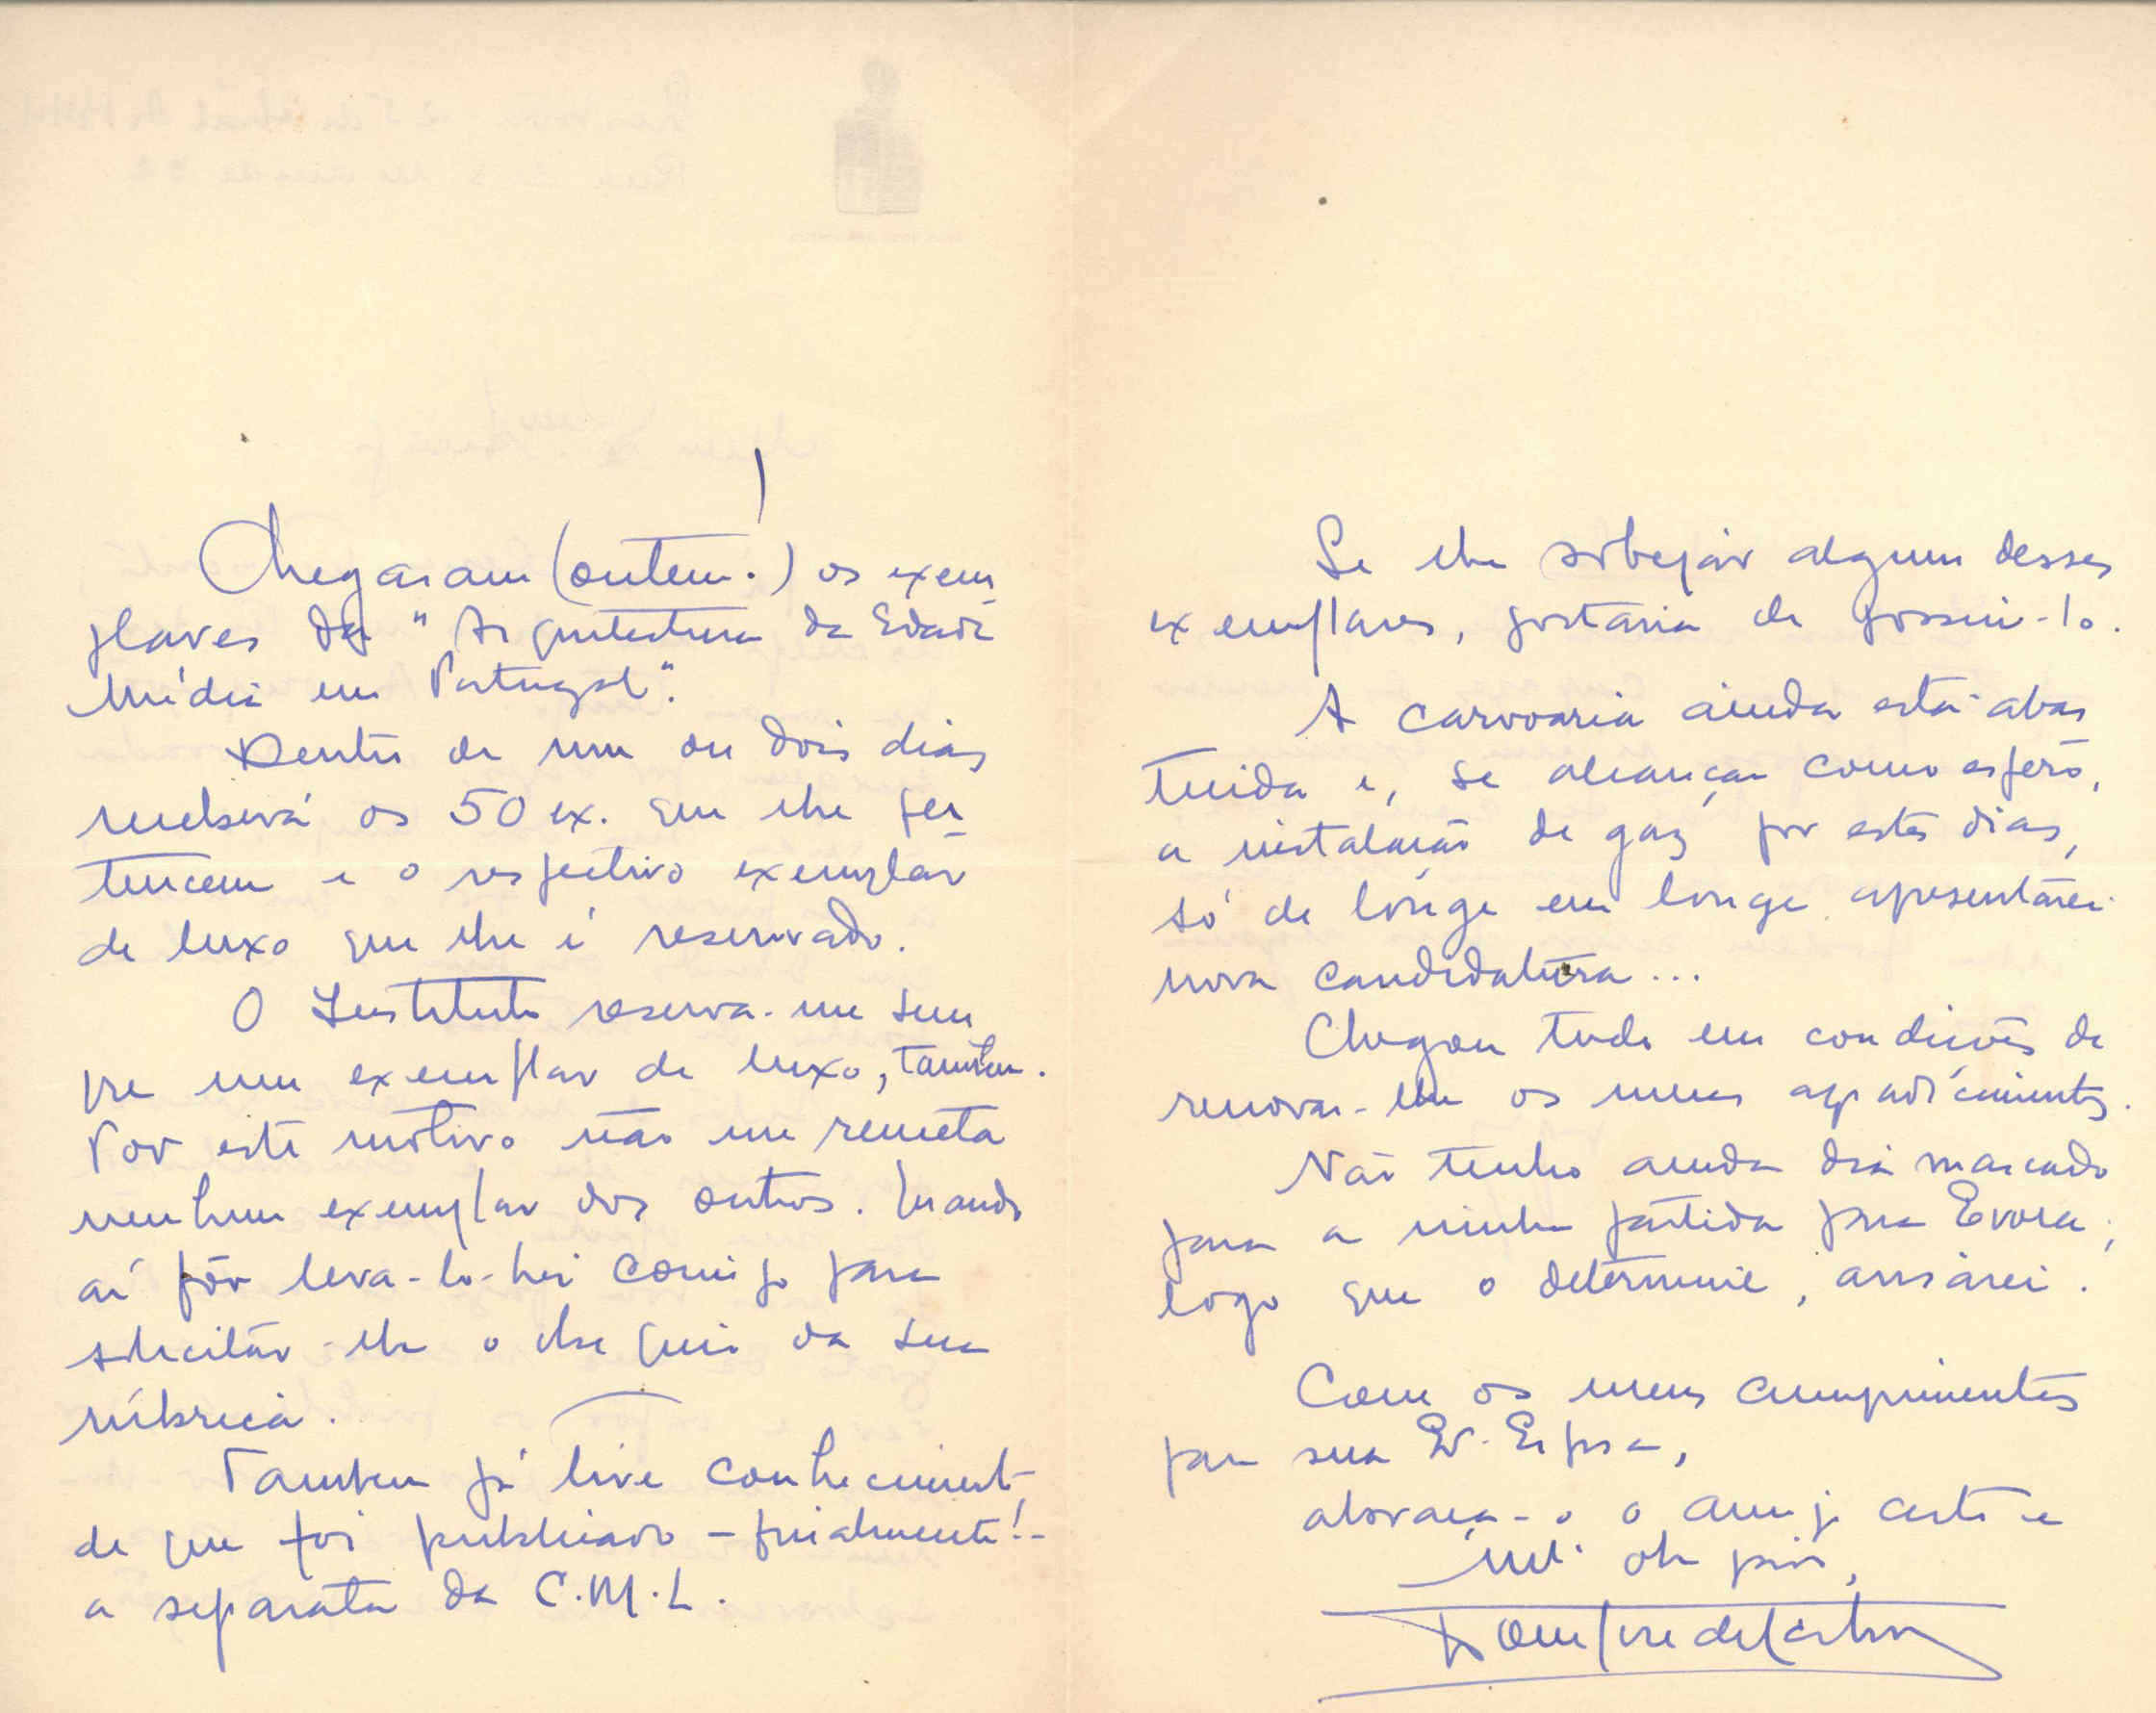 Chegaram (ontem!) os exem-
plares da "Arquitectura da Edade
Média em Portugal".
Dentro de um ou dois dias
receberá os 50 ex. que lhe per-
tencem e o respectivo exemplar
de luxo que lhe é reservado.
O Instituto reserva-me sem-
pre um exemplar de luxo, tambem.
Por este motivo não me remeta
nenhum exemplar dos outros. Quando
aí fôr leva-lo-hei comigo para
solicitar-lhe o obsequio da sua
rúbrica.
Tambem já tive conhecimento
de que foi publicado - finalmente! -
a separata da C.M.L.
Se lhe sobejar algum desses
exemplares, gostaria de possui-lo.
A carvoaria ainda está abas
tecida e, se alcançar como espero,
a instalação de gaz por estes dias,
só de longe em longe apresentarei
nova candidatura...
Chegou tudo em condições de
renovar-lhe os meus agradecimentos.
Não tenho ainda dia marcado
para a minha partida para Evora;
logo que o determine, avisarei.
Com os meus cumprimentos
para sua Exª. Esposa,
abraça-o o amigo certo e
mtº obgdo,